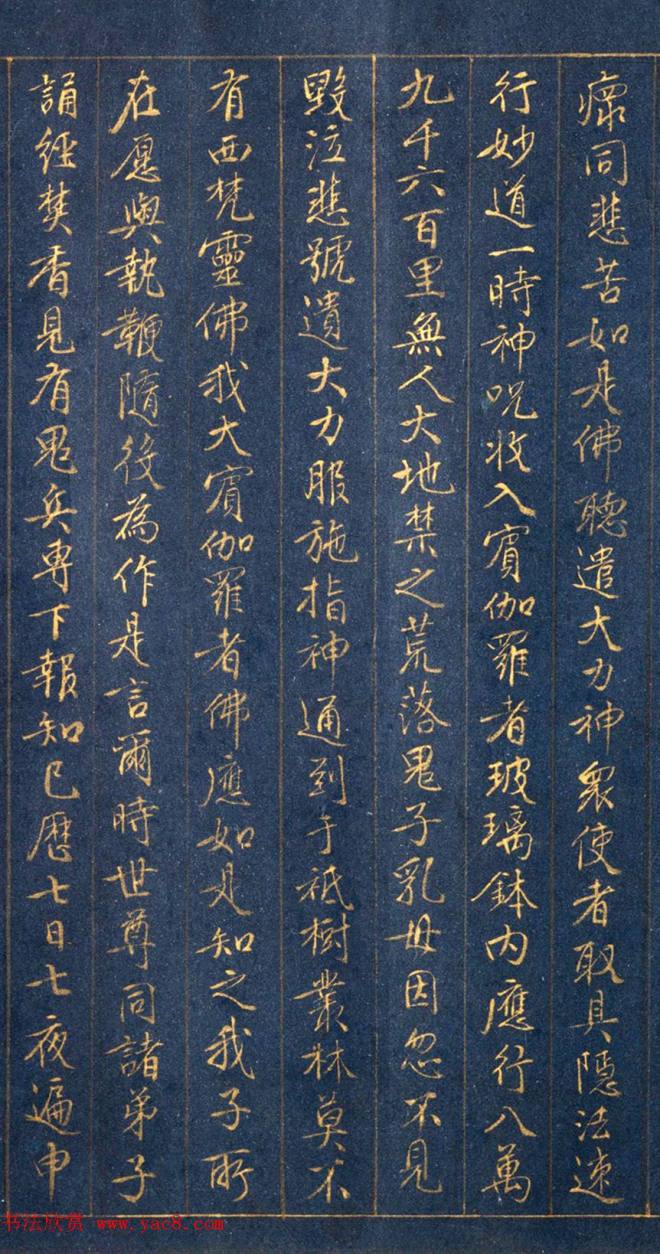 瘝同悲苦如是佛聽遣大力神眾使者取具隱法速
行妙道一時神呪收入賓伽羅者玻璃鉢内應行八萬
九千六百里無人大地禁之荒落鬼子乳母因忽不見
毀泣悲號遺大力服施指神通到于祇樹叢林莫不
有西梵靈佛我大賓伽羅者佛應如是知之我子所
在愿與執鞭隨役為作是言爾時世尊同諸弟子
誦經焚香見有鬼兵専下報知已歷七日七夜遍申
书法欣赏 www.yac8.com